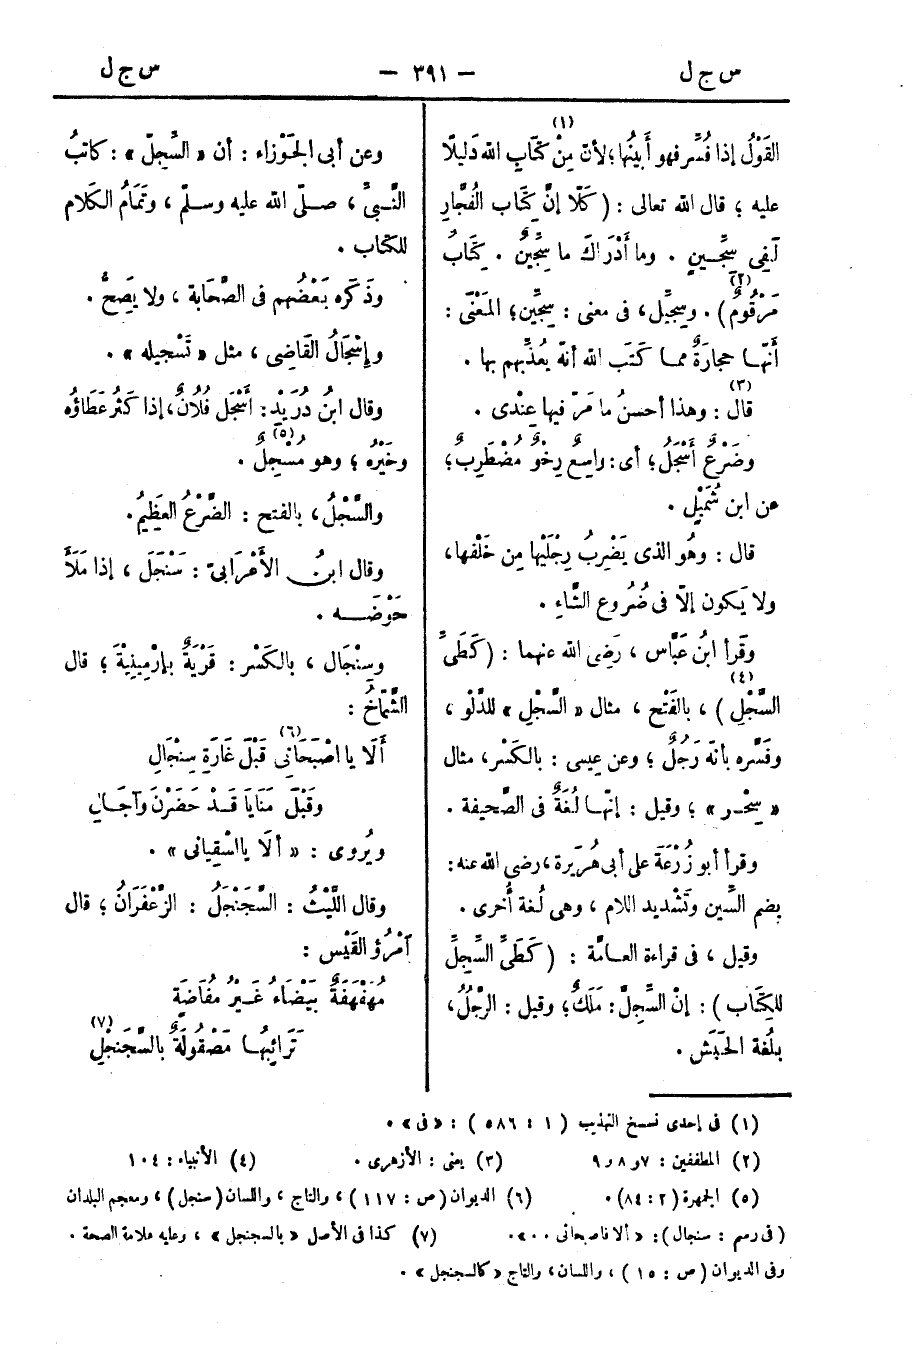 س ج ل — ٣٩١ — س ج ل
القَوْلُ إذا فُسِّر فهو أَبينُها؛ لأنّ مِنْ (١) كتَابِ الله دَليلًا
عليه ؛ قال الله تعالى : ( كَلّا إنَّ كِتَاب الفُجّارِ
لَفِى سِجِّــينٍ . وما أَدْرَاكَ ما سِجِّينٌ . كِتَابٌ
مَرْقُومٌ ) (٢) . وسِجِّيل، فى معنى : سِجِّين؛ المَعْنَى :
أنّهـا حجارَةٌ ممـا كَتَب الله أنّه يُعذِّبهم بها .
قال (٣) : وهذا أحسنُ ما مَرّ فيها عِنْدى .
وضَرْعٌ أَسْجَلُ؛ أى : واسِعٌ رِخْوٌ مُضْطَرِبٌ؛
عن ابن شُمَيْلٍ .
قال : وهُو الذى يَضْرِبُ رِجْلَيْها مِن خَلْفها،
ولا يَكون إلاّ فى ضُرُوع الشَّاءِ .
وقَرأ ابنُ عَبَّاس ، رَضِى الله عنهما : ( كَطَىِّ
السَّجْلِ ) (٤) ، بالفَتْح ، مثال « السَّجْلِ » للدَّلْو ،
وفَسَّره بأنّه رَجُلٌ ؛ وعن عِيسى : بالكَسْر، مثال
« سِحْـر » ؛ وقيل : إنّهـا لُغَةٌ فى الصَّحيفة .
وقرأ أبو زُرْعَةَ على أبى هُرَيرة، رضى الله عنه :
بِضم السِّين وتَشْديد اللام ، وهى لُغة أُخرى .
وقيل ، فى قراءة العـامَّة : ( كَطَىِّ السِّجِلِّ
للكِتَاب ) : إنّ السِّجِلَّ : مَلَكٌ؛ وقيل : الرَّجُلُ،
بلُغة الحَبَش .
وعن أبى الجَوْزاء : أن « السِّجِلّ » : كاتبُ
النَّـبىِّ ، صـلّى الله عليه وسـلّم ، وتَمَامُ الكلام
للكتَاب .
وذَكَره بَعْضُهم فى الصَّحَابة ، ولا يَصِحُّ .
وإسْجَالُ القَاضِى ، مثل « تَسْجيله » .
وقال ابنُ دُرَيْدٍ : أَسْجَل فُلانٌ، إذا كَثُر عَطَاؤُه
وخَيْرُه ؛ وهو مُسْجِلٌ (٥) .
والسَّجْلُ، بالفتح : الضَّرْعُ العَظِيمُ.
وقال ابنُ الأعْرَابىّ : سَنْجَلَ ، إذا مَلَأ
حَوْضَـــه .
وسِنْجَال ، بالكَسْر : قَرْيَةٌ بإرْمِينِيَةَ ؛ قال
الشَّمّاخُ :
أَلَا يا اصْبَحَانِى (٦) قَبْلَ غَارَةِ سِنْجَالِ
وقَبْلَ مَنَايَا قَــدْ حَضَرْنَ وآجَـالِ
ويُروى : « ألَا يا اسْقِيانى » .
وقال اللَّيْثُ : السَّجَنْجَلُ : الزَّعْفَرَانُ ؛ قال
آمْرُؤ القَيْس :
مُهَفْهَفَةٌ بَيْضَاءُ غَيْرُ مُفَاضَةٍ
تَرَائِبُهـا مَصْقُولَةٌ بالسَّجَنْجَلِ (٧)
(١) فى إحدى نسخ التهذيب ( ١ : ٥٨٦ ) : « فى » .
(٢) المطففين : ٧ و ٨ و ٩ (٣) يعنى : الأزهرى . (٤) الأنبياء : ١٠٤
(٥) الجمهرة (٢ : ٨٤) . (٦) الديوان (ص : ١١٧) ، والتاج ، واللسان (سنجل) ، ومعجم البلدان
(فى رسم : سنجال) : « ألا فاصبحانى ... » . (٧) كذا فى الأصل « بالسجنجل » ، وعليه علامة الصحة .
وفى الديوان (ص : ١٥) ، واللسان، والتاج « كالسجنجل » .